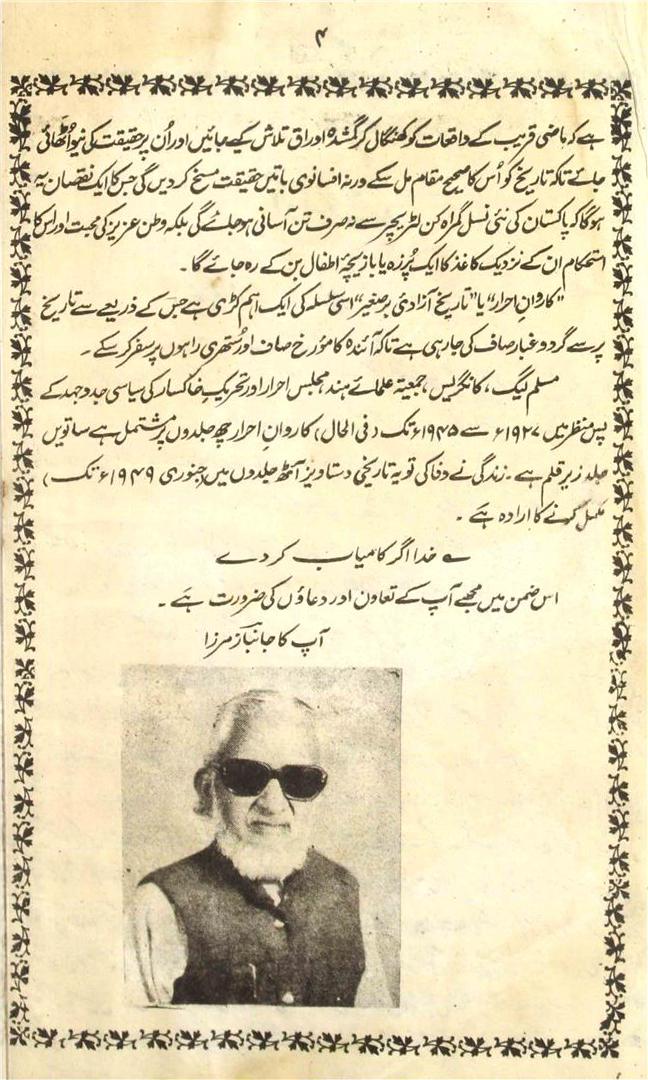 ۴
ہے کہ ماضی قریب کے واقعات کو کھنگال کر گمشدہ اوراق تلاش کیے جائیں اور اُن پر حقیقت کی نیو اُٹھائی
جائے تاکہ تاریخ کو اُس کا صحیح مقام مل سکے ورنہ افسانوی باتیں حقیقت مسخ کر دیں گی جس کا ایک نقصان یہ
ہوگا کہ پاکستان کی نئی نسل گمراہ کن لٹریچر سے نہ صرف تن آسانی ہو جائے گی بلکہ وطن عزیز کی محبت اور اس کا
استحکام ان کے نزدیک کاغذ کا ایک پُرزہ یا بازیچۂ اطفال بن کے رہ جائے گا۔
"کاروانِ احرار" یا "تاریخ آزادیٔ برصغیر" اسی سلسلہ کی ایک اہم کڑی ہے جس کے ذریعے سے تاریخ
پر سے گرد و غبار صاف کی جارہی ہے تاکہ آئندہ کا مؤرخ صاف اور سُتھری راہوں پر سفر کر سکے۔
مسلم لیگ، کانگریس، جمعیتہ علمائے ہند، مجلس احرار اور تحریکِ خاکسار کی سیاسی جدوجہد کے
پس منظر میں ۱۹۲۷ء سے ۱۹۴۵ء تک (فی الحال) کاروانِ احرار چھ جلدوں پر مشتمل ہے ساتویں
جلد زیرِ قلم ہے۔ زندگی نے وفا کی تو یہ تاریخی دستاویز آٹھ جلدوں میں (جنوری ۱۹۴۹ء تک)
مکمل کرنے کا ارادہ ہے۔
؎ خدا اگر کامیاب کر دے
اس ضمن میں مجھے آپ کے تعاون اور دعاؤں کی ضرورت ہے۔
آپ کا جانباز مرزا